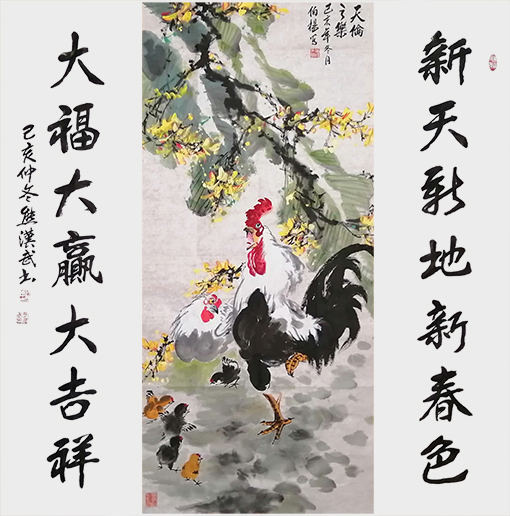 新天新地新春色
天倫
之樂
己亥年冬月
伯楊写
大福大赢大吉祥
己亥仲冬熊漢武书